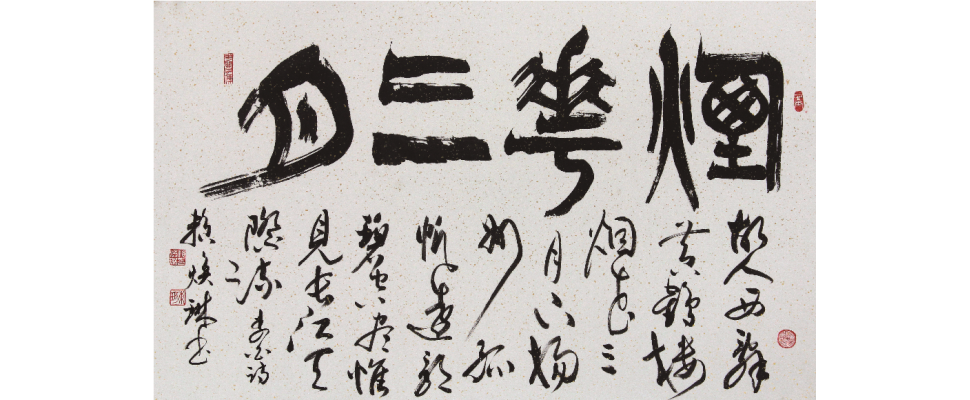 煙華三月
故人西辞
黄鹤楼
烟花三
月下扬
州孤
帆远影
碧空尽惟
见长江天
际流 李白诗
焕 书